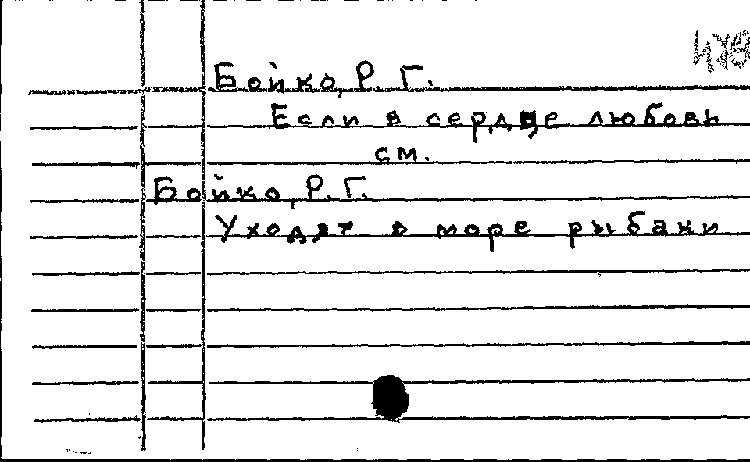 478
Бойко, Р. Г.
Если в сердце любовь
см.
Бойко, Р. Г.
Уходят в море рыбаки